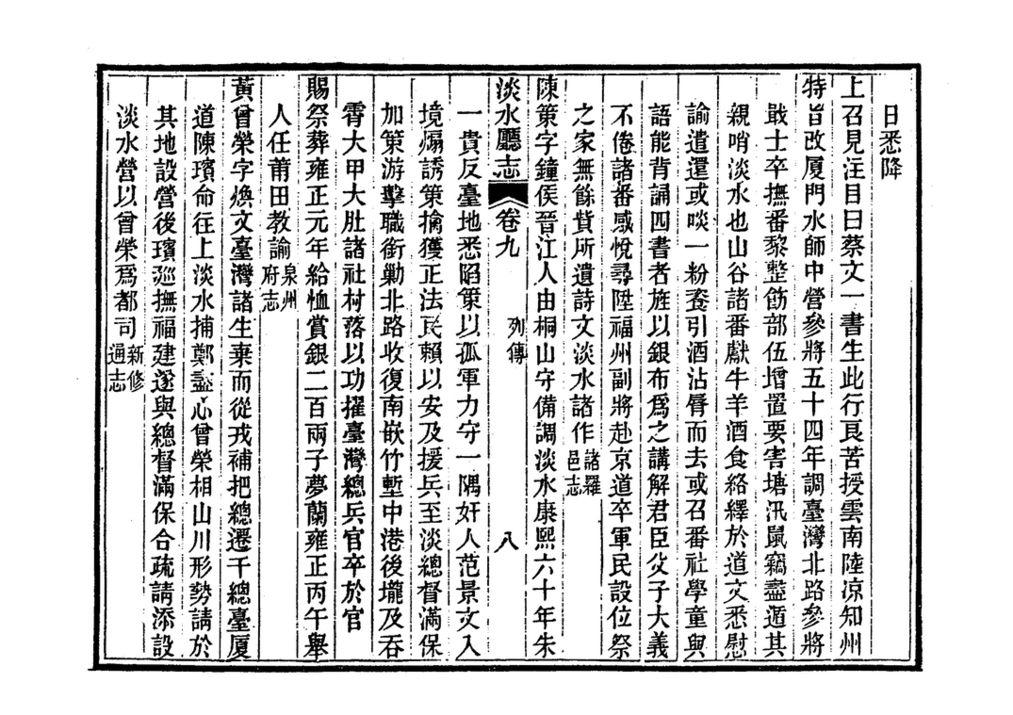 日悉降
上召見注目曰蔡文一書生此行良苦授雲南陸凉知州
特旨改厦門水師中營參將五十四年調臺灣北路參將
戢士卒撫番黎整飭部伍增置要害塘汛鼠竊盡遁其
親哨淡水也山谷諸番獻牛羊酒食絡繹於道文悉慰
諭遣還或啖一粉餈引酒沾脣而去或召番社學童與
語能背誦四書者旌以銀布爲之講解君臣父子大義
不倦諸番感悅尋陞福州副將赴京道卒軍民設位祭
之家無餘貲所遺詩文淡水諸作諸羅邑志
陳策字鐘侯晉江人由桐山守備調淡水康熙六十年朱
淡水廳志 卷九 列傳 八
一貴反臺地悉陷策以孤軍力守一隅奸人范景文入
境煽誘策擒獲正法民賴以安及援兵至淡總督滿保
加策游擊職銜勦北路收復南嵌竹塹中港後壠及吞
霄大甲大肚諸社村落以功擢臺灣總兵官卒於官
賜祭葬雍正元年給恤賞銀二百兩子夢蘭雍正丙午舉
人任莆田教諭泉州府志
黃曾榮字煥文臺灣諸生棄而從戎補把總遷千總臺厦
道陳璸命往上淡水捕鄭盡心曾榮相山川形勢請於
其地設營後璸廵撫福建遂與總督滿保合疏請添設
淡水營以曾榮爲都司新修通志